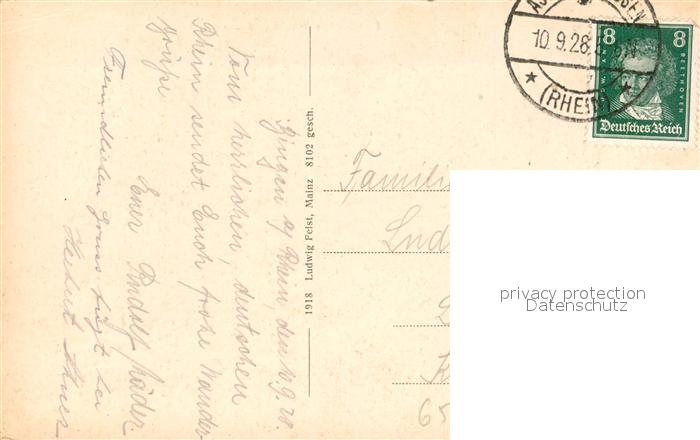 Bingen a/ Rhein den 10.9.28.
Vom herrlichen, deutschen
Rhein sendet Euch frohe Wander-
grüße
Euer Rudolf
Freundlichen Gruss fügt bei
Herbert
1918 Ludwig Feist, Mainz 8102 gesch.
Famili
Lud
65
10.9.28
(RHEIN)
8 8
BEETHOVEN
Deutsches Reich
privacy protection
Datenschutz